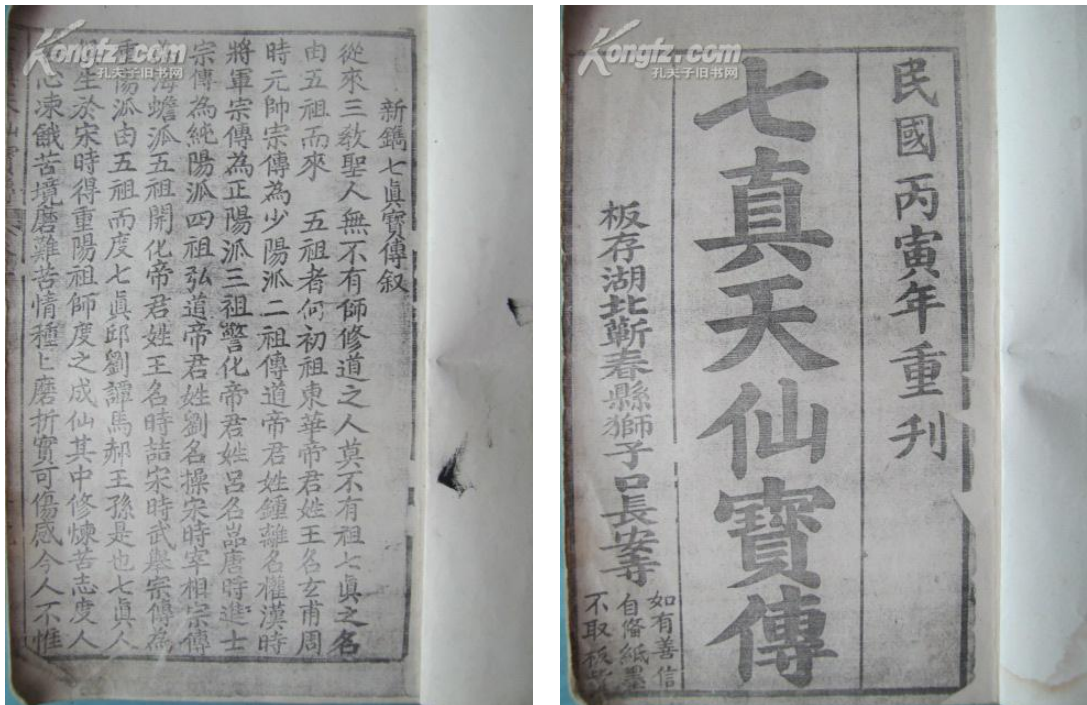 Kongfz.com
孔夫子旧书网
新鐫七眞寶傳叙
從來三敎聖人無不有師修道之人莫不有祖七眞之名
由五祖而來　五祖者何初祖東華帝君姓王名玄甫周
時元帥宗傳為少陽派二祖傳道帝君姓鍾離名權漢時
將軍宗傳為正陽派三祖警化帝君姓呂名嵓唐時進士
宗傳為純陽派四祖弘道帝君姓劉名操宋時宰相宗傳
海蟾派五祖開化帝君姓王名時喆宋時武舉宗傳為
重陽派由五祖而度七眞邱劉譚馬郝王孫是也七眞人
生於宋時得重陽祖師度之成仙其中修煉苦志度人
心凍餓苦境磨難苦情種匕磨折實可傷感今人不惟
Kongfz.com
孔夫子旧书网
民國丙寅年重刋
七真天仙寶傳
板存湖北蘄春縣獅子口長安寺
如有善信
自俻紙墨
不取板